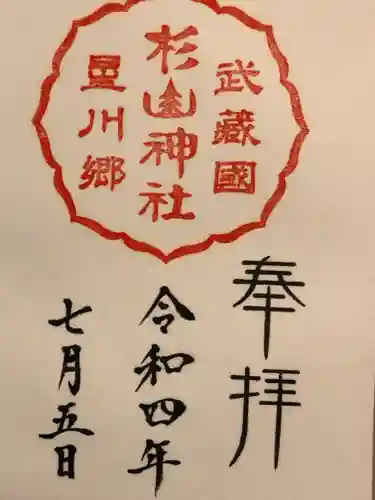 武蔵國
杉山神社
星川郷
奉拝
令和四年
七月五日